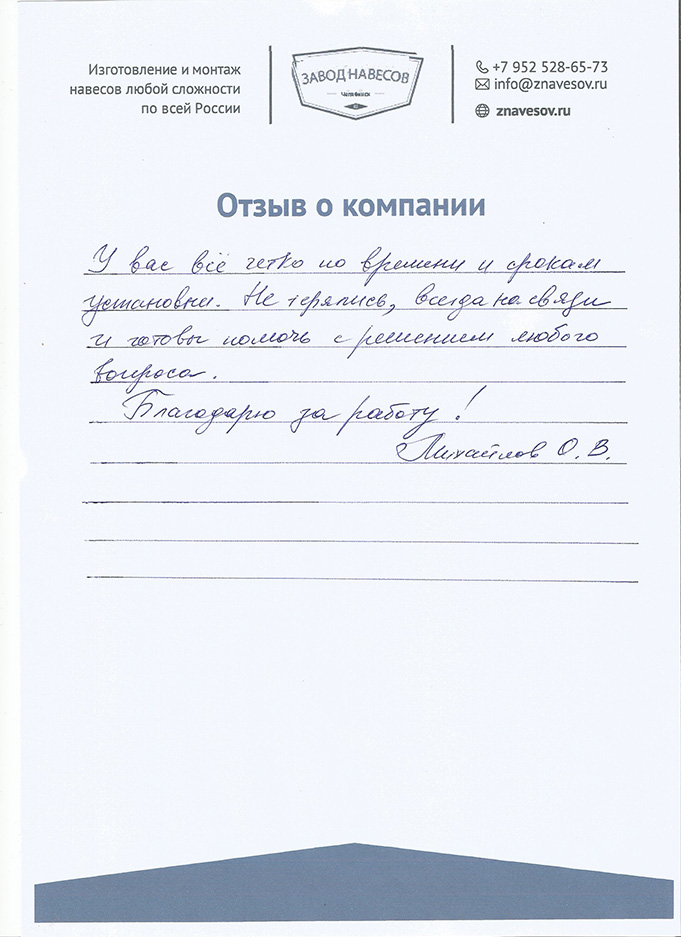 Изготовление и монтаж
навесов любой сложности
по всей России
ЗАВОД НАВЕСОВ
Челябинск
+7 952 528-65-73
info@znavesov.ru
znavesov.ru
Отзыв о компании
У вас всё четко по времени и срокам
установки. Не терялись, всегда на связи
и готовы помочь с решением любого
вопроса.
Благодарю за работу!
Михайлов О. В.